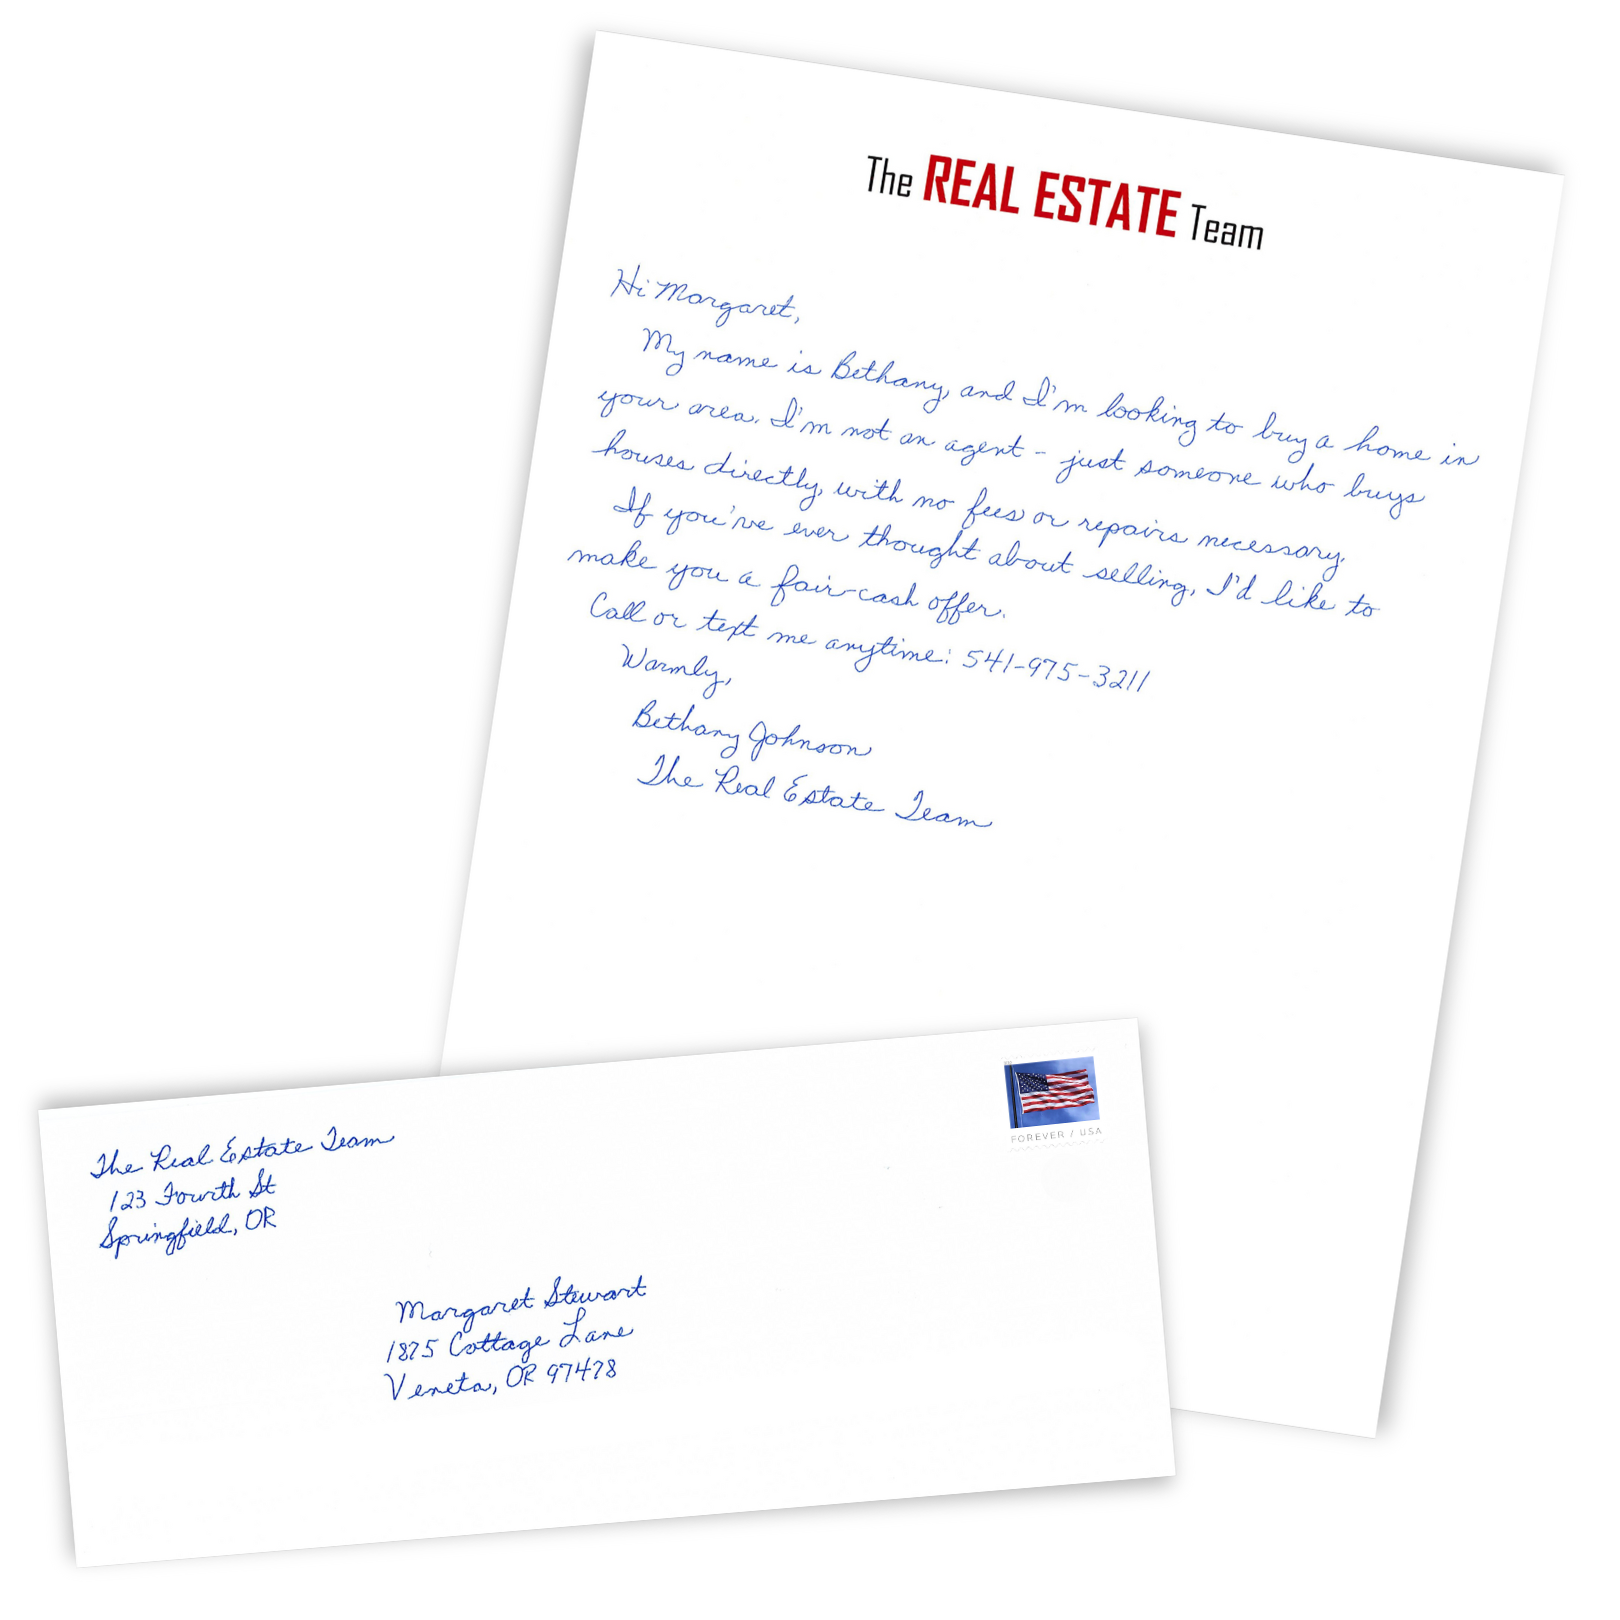 The REAL ESTATE Team
Hi Margaret,
My name is Bethany, and I'm looking to buy a home in
your area. I'm not an agent - just someone who buys
houses directly, with no fees or repairs necessary.
If you've ever thought about selling, I'd like to
make you a fair cash offer.
Call or text me anytime: 541-975-3211
Warmly,
Bethany Johnson
The Real Estate Team
FOREVER / USA
The Real Estate Team
123 Fourth St
Springfield, OR
Margaret Stewart
1875 Cottage Lane
Veneta, OR 97478